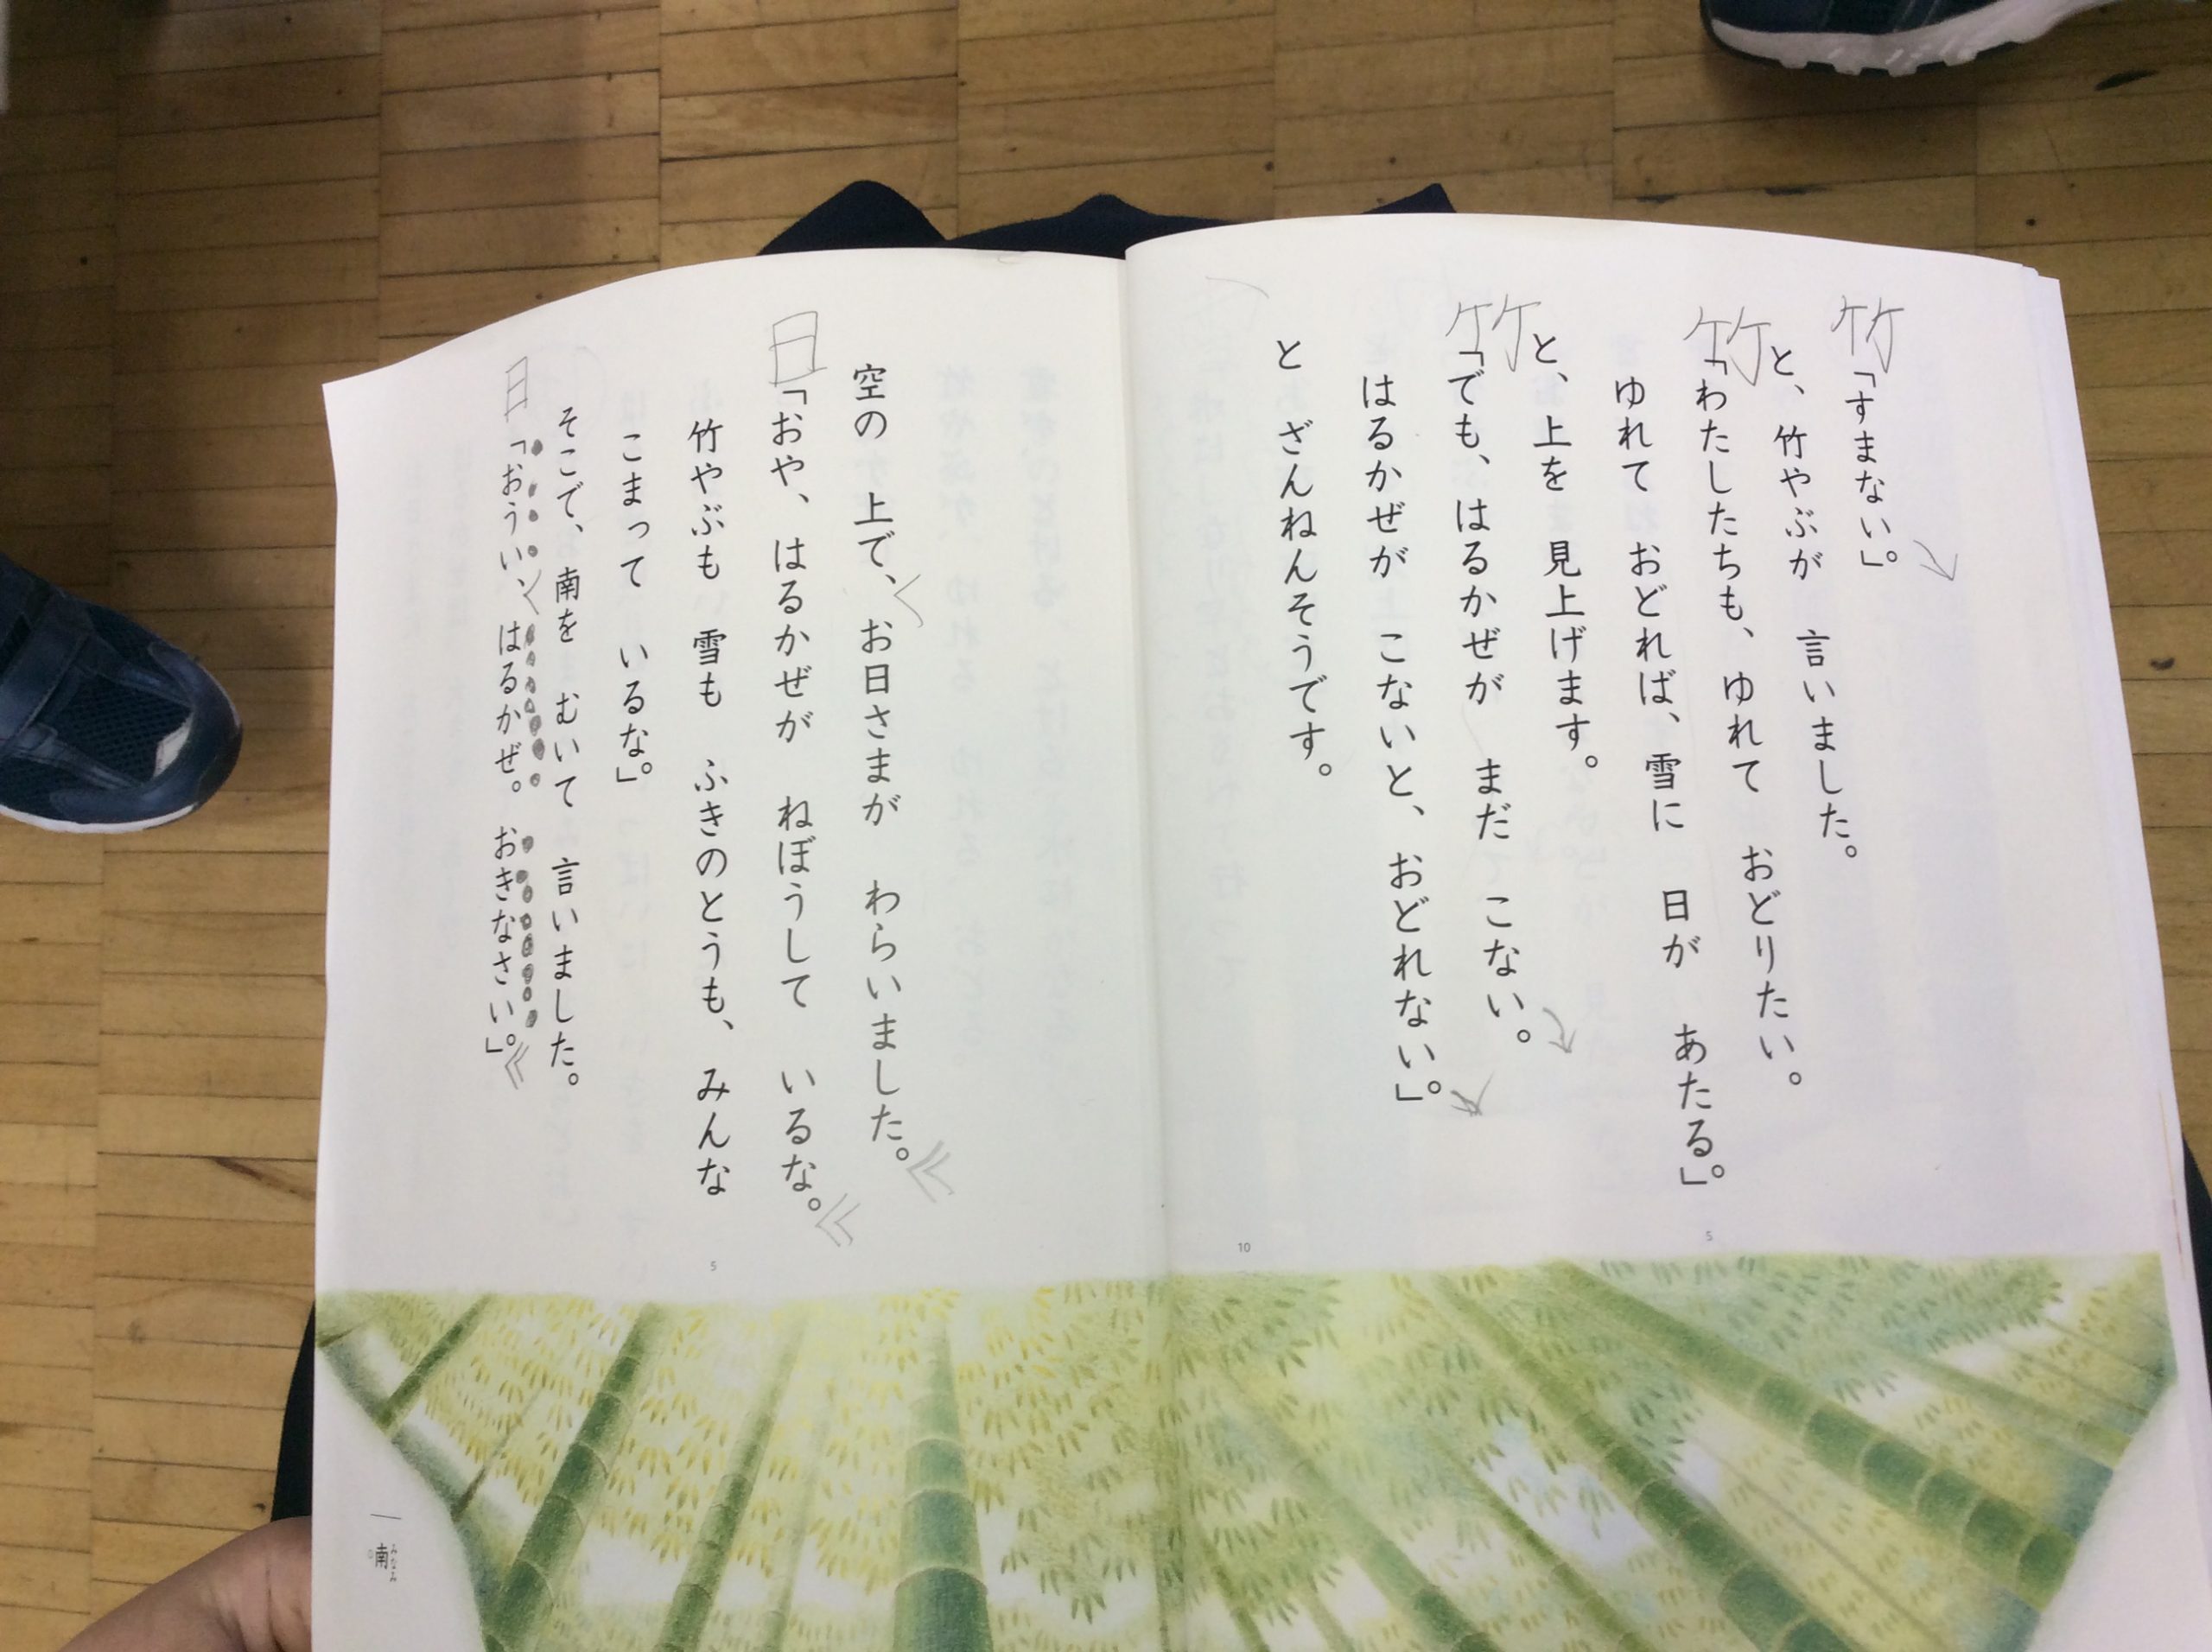 竹
「すまない」。
と、竹やぶが 言いました。
竹
「わたしたちも、ゆれて おどりたい。
ゆれて おどれば、雪に 日が あたる」。
と、上を 見上げます。
竹
「でも、はるかぜが まだ こない。
はるかぜが こないと、おどれない」。
と ざんねんそうです。
5
10
空の 上で、お日さまが わらいました。
日
「おや、はるかぜが ねぼうして いるな。
竹やぶも 雪も ふきのとうも、みんな
こまって いるな」。
そこで、南を むいて 言いました。
日
「おうい、はるかぜ。 おきなさい」。
5
南
みなみ